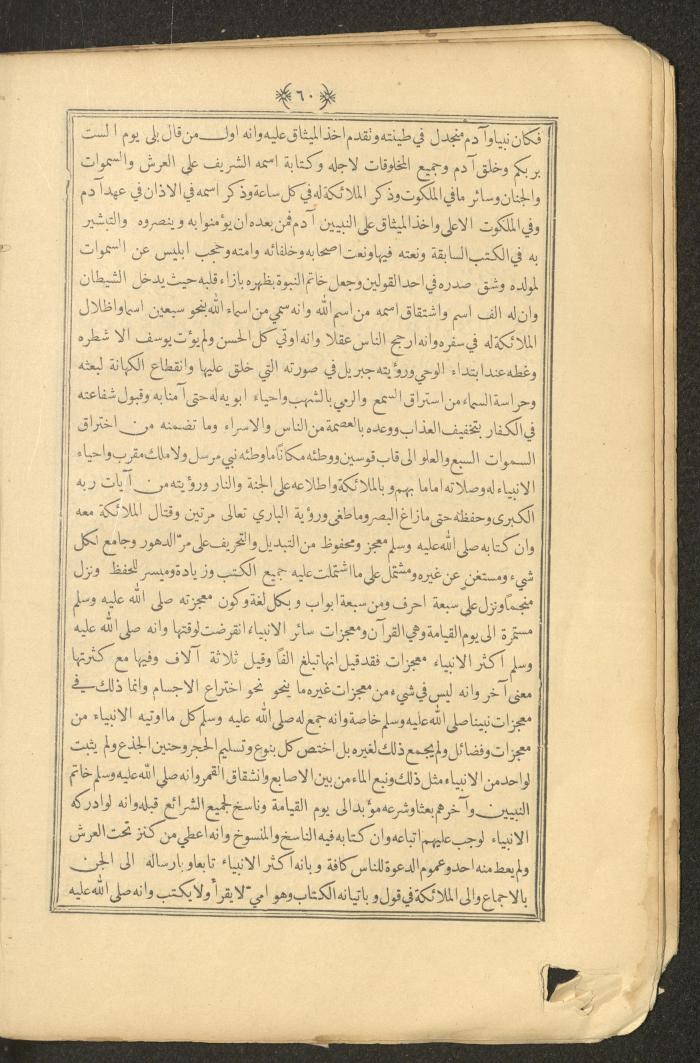 ٦٠
فكان نبيا وآدم منجدل في طينته وتقدم اخذ الميثاق عليه وانه اول من قال بلى يوم الست
بربكم وخلق آدم وجميع المخلوقات لاجله وكتابة اسمه الشريف على العرش والسموات
والجنان وسائر ما في الملكوت وذكر الملائكة له في كل ساعة وذكر اسمه في الاذان في عهد آدم
وفي الملكوت الاعلى واخذ الميثاق على النبيين آدم فمن بعده ان يؤمنوا به وينصروه والتبشير
به في الكتب السابقة ونعته فيها ونعت اصحابه وخلفائه وامته وحجب ابليس عن السموات
لمولده وشق صدره في احد القولين وجعل خاتم النبوة بظهره بازاء قلبه حيث يدخل الشيطان
وان له الف اسم واشتقاق اسمه من اسم الله وانه سمي من اسماء الله بنحو سبعين اسما واظلال
الملائكة له في سفره وانه ارجح الناس عقلا وانه اوتي كل الحسن ولم يؤت يوسف الا شطره
وغطه عند ابتداء الوحي ورؤيته جبريل في صورته التي خلق عليها وانقطاع الكهانة لبعثه
وحراسة السماء من استراق السمع والرمي بالشهب واحياء ابويه له حتى آمنا به وقبول شفاعته
في الكفار بتخفيف العذاب ووعده بالعصمة من الناس والاسراء وما تضمنه من اختراق
السموات السبع والعلو الى قاب قوسين ووطئه مكانا ما وطئه نبي مرسل ولا ملك مقرب واحياء
الانبياء له وصلاته اماما بهم وبالملائكة واطلاعه على الجنة والنار ورؤيته من آيات ربه
الكبرى وحفظه حتى ما زاغ البصر وما طغى ورؤية الباري تعالى مرتين وقتال الملائكة معه
وان كتابه صلى الله عليه وسلم معجز ومحفوظ من التبديل والتحريف على مرّ الدهور وجامع لكل
شيء ومستغنٍ عن غيره ومشتمل على ما اشتملت عليه جميع الكتب وزيادة وميسر للحفظ ونزل
منجما ونزل على سبعة احرف ومن سبعة ابواب وبكل لغة وكون معجزته صلى الله عليه وسلم
مستمرة الى يوم القيامة وهي القرآن ومعجزات سائر الانبياء انقرضت لوقتها وانه صلى الله عليه
وسلم اكثر الانبياء معجزات فقد قيل انها تبلغ الفا وقيل ثلاثة آلاف وفيها مع كثرتها
معنى آخر وانه ليس في شيء من معجزات غيره ما ينحو نحو اختراع الاجسام وانما ذلك في
معجزات نبينا صلى الله عليه وسلم خاصة وانه جمع له صلى الله عليه وسلم كل ما اوتيه الانبياء من
معجزات وفضائل ولم يجمع ذلك لغيره بل اختص كل بنوع وتسليم الحجر وحنين الجذع ولم يثبت
لواحد من الانبياء مثل ذلك ونبع الماء من بين الاصابع وانشقاق القمر وانه صلى الله عليه وسلم خاتم
النبيين وآخرهم بعثا وشرعه مؤبد الى يوم القيامة وناسخ لجميع الشرائع قبله وانه لو ادركه
الانبياء لوجب عليهم اتباعه وان كتابه فيه الناسخ والمنسوخ وانه اعطي من كنز تحت العرش
ولم يعط منه احد وعموم الدعوة للناس كافة وبانه اكثر الانبياء تابعا وبارساله الى الجن
بالاجماع والى الملائكة في قول وباتيانه الكتاب وهو اميّ لا يقرأ ولا يكتب وانه صلى الله عليه